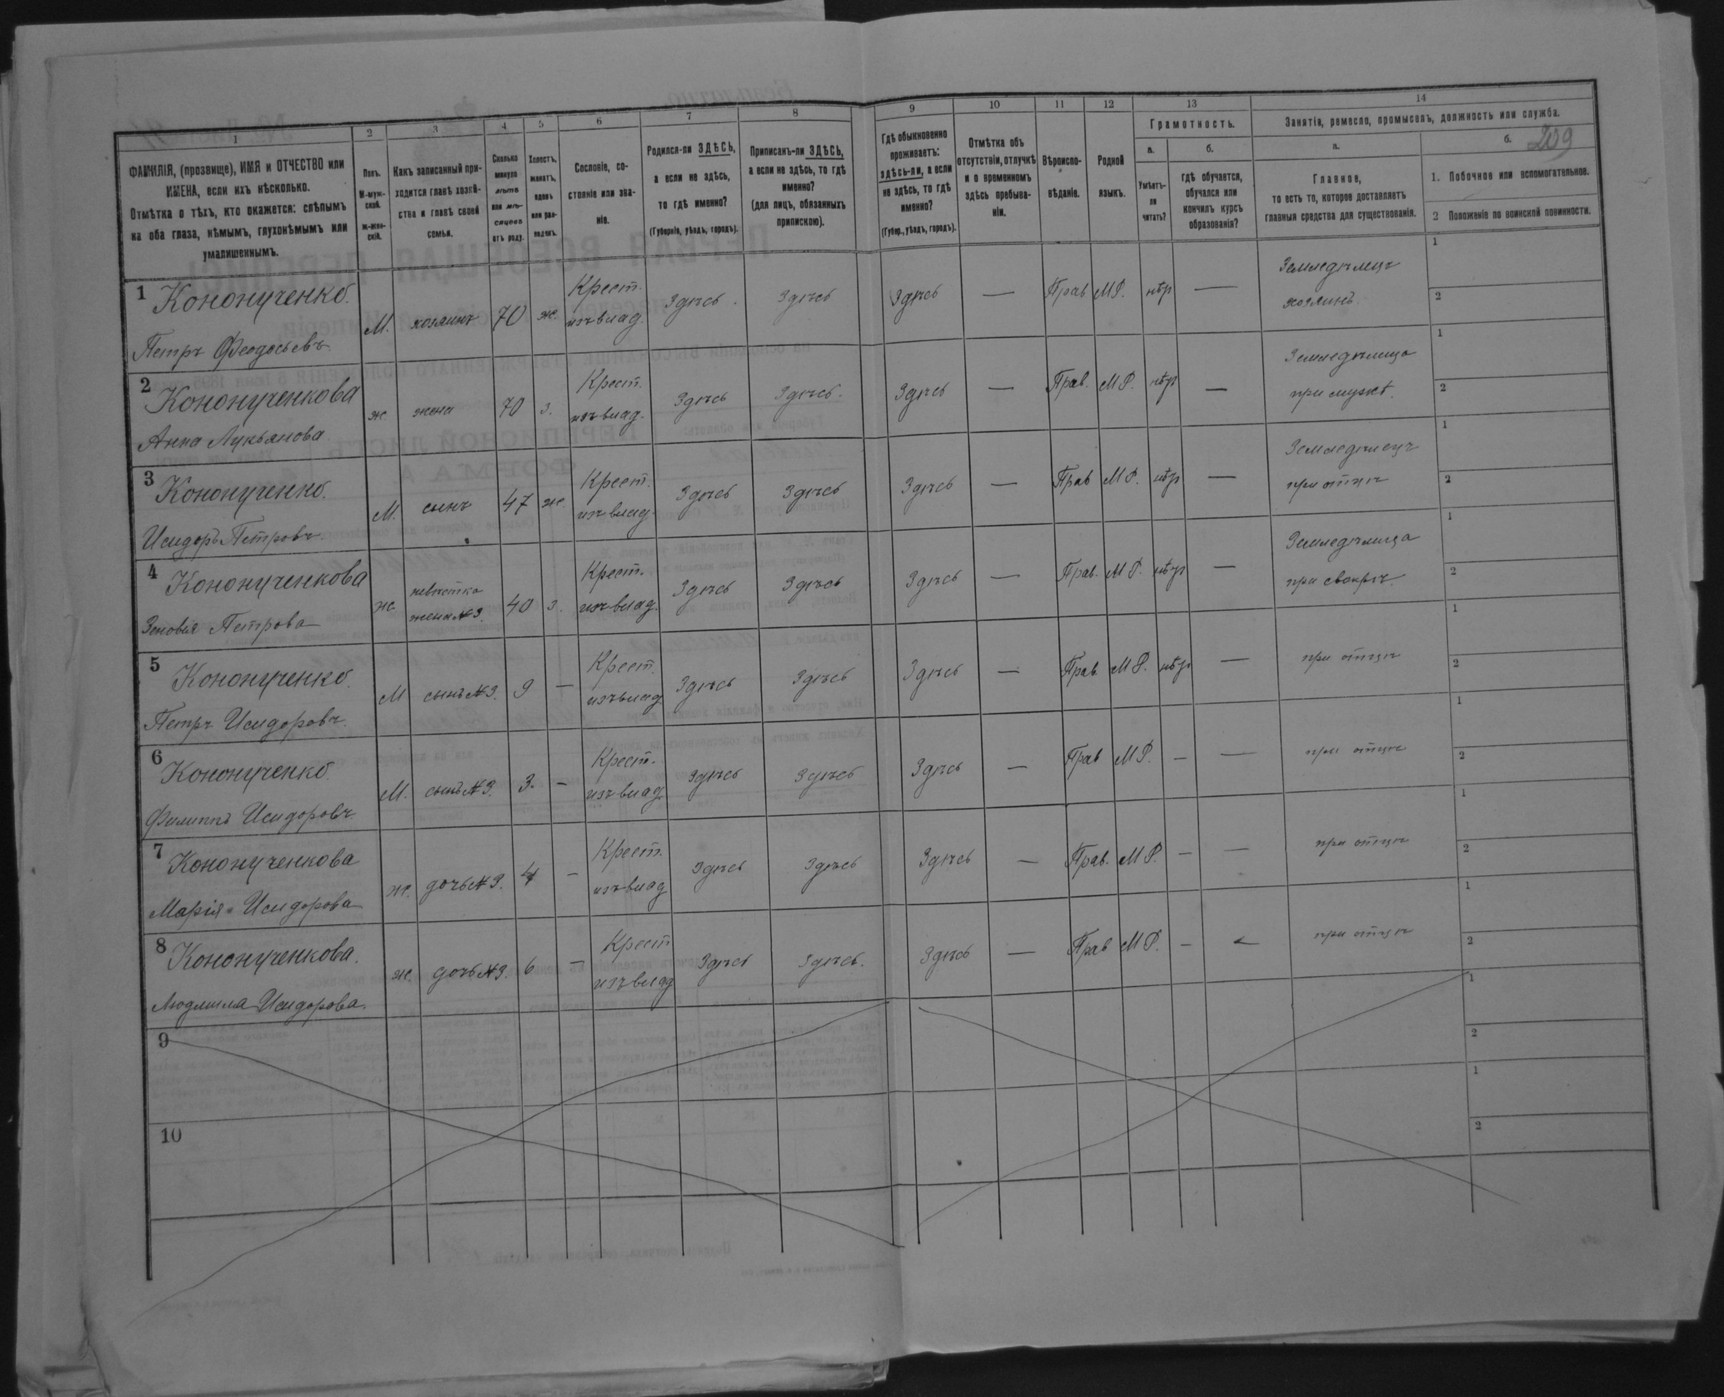 209
1 2 3 4 5 6 7 8 9 10 11 12 13 14
ФАМИЛІЯ, (прозвище), ИМЯ и ОТЧЕСТВО или
ИМЕНА, если ихъ нѣсколько.
Отмѣтка о тѣхъ, кто окажется: слѣпымъ
на оба глаза, нѣмымъ, глухонѣмымъ или
умалишеннымъ.
Полъ.
М-муж-
ской.
Ж-жен-
скій.
Какъ записанный при-
ходится главѣ хозяй-
ства и главѣ своей
семьи.
Сколько
минуло
лѣтъ
или мѣ-
сяцевъ
отъ роду.
Холостъ,
женатъ,
вдовъ
или раз-
веденъ.
Сословіе, со-
стояніе или зва-
ніе.
Родился-ли ЗДѢСЬ,
а если не здѣсь,
то гдѣ именно?
(Губернія, уѣздъ, городъ).
Приписанъ-ли ЗДѢСЬ,
а если не здѣсь, то гдѣ
именно?
(для лицъ, обязанныхъ
припискою).
Гдѣ обыкновенно
проживаетъ:
здѣсь-ли, а если
не здѣсь, то гдѣ
именно?
(Губер., уѣздъ, городъ).
Отмѣтка объ
отсутствіи, отлучкѣ
и о временномъ
здѣсь пребыва-
ніи.
Вѣроиспо-
вѣданіе.
Родной
языкъ.
Грамотность.
а.
Умѣетъ-
ли
читать?
б.
Гдѣ обучается,
обучался или
кончилъ курсъ
образованія?
Занятія, ремесло, промыселъ, должность или служба.
а.
Главное,
то есть то, которое доставляетъ
главныя средства для существованія.
б.
1. Побочное или вспомогательное.
2 Положеніе по воинской повинности.
1 Кононученко. М. хозяинъ 70 ж. Крест. изъ влад. Здѣсь. Здѣсь Здѣсь — Прав М.Р. нѣт — Земледѣлецъ хозяинъ. 1 2
Петръ Феодосьевъ.
2 Кононученкова ж. жена 70 з. Крест. изъ влад. Здѣсь Здѣсь. Здѣсь — Прав. М.Р. нѣт — Земледѣлица при мужѣ. 1 2
Анна Лукьянова
3 Кононученко. М. сынъ 47 ж Крест. изъ влад. Здѣсь Здѣсь Здѣсь — Прав М.Р. нѣт — Земледѣлецъ при отцѣ 1 2
Исидоръ Петровъ
4 Кононученкова ж. невѣстка жена №3. 40 з. Крест. изъ влад. Здѣсь Здѣсь Здѣсь — Прав. М.Р. нѣт — Земледѣлица при свекрѣ. 1 2
Зеновія Петрова
5 Кононученко. М сынъ №3. 9 — Крест. изъ влад. Здѣсь Здѣсь Здѣсь — Прав. М.Р. нѣт — при отцѣ 1 2
Петръ Исидоровъ.
6 Кононученко. М. сынъ №3. 3. — Крест. изъ влад. Здѣсь Здѣсь Здѣсь — Прав М.Р. - — при отцѣ 1 2
Филиппъ Исидоровъ
7 Кононученкова ж. дочь №3. 4 — Крест. изъ влад Здѣсь Здѣсь Здѣсь — Прав. М.Р. - — при отцѣ 1 2
Марія Исидорова
8 Кононученкова. ж. дочь №3. 6 — Крест изъ влад Здѣсь Здѣсь. Здѣсь — Прав М.Р. - — при отцѣ 1 2
Людмила Исидорова.
9 1 2
10 1 2